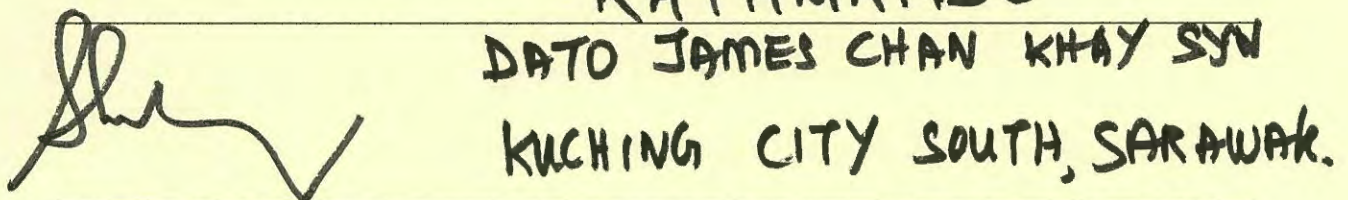 DATO JAMES CHAN KHAY SYN
KUCHING CITY SOUTH, SARAWAK.